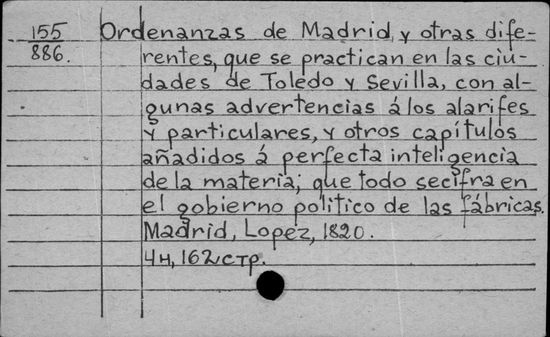 155 Ordenanzas de Madrid, y otras dife-
886. rentes, que se practican en las ciu-
dades de Toledo y Sevilla, con al-
gunas advertencias á los alarifes
y particulares, y otros capítulos
añadidos á perfecta inteligencia
de la materia; que todo secifra en
el gobierno politico de las fábricas.
Madrid, Lopez, 1820.
4н, 162 стр.